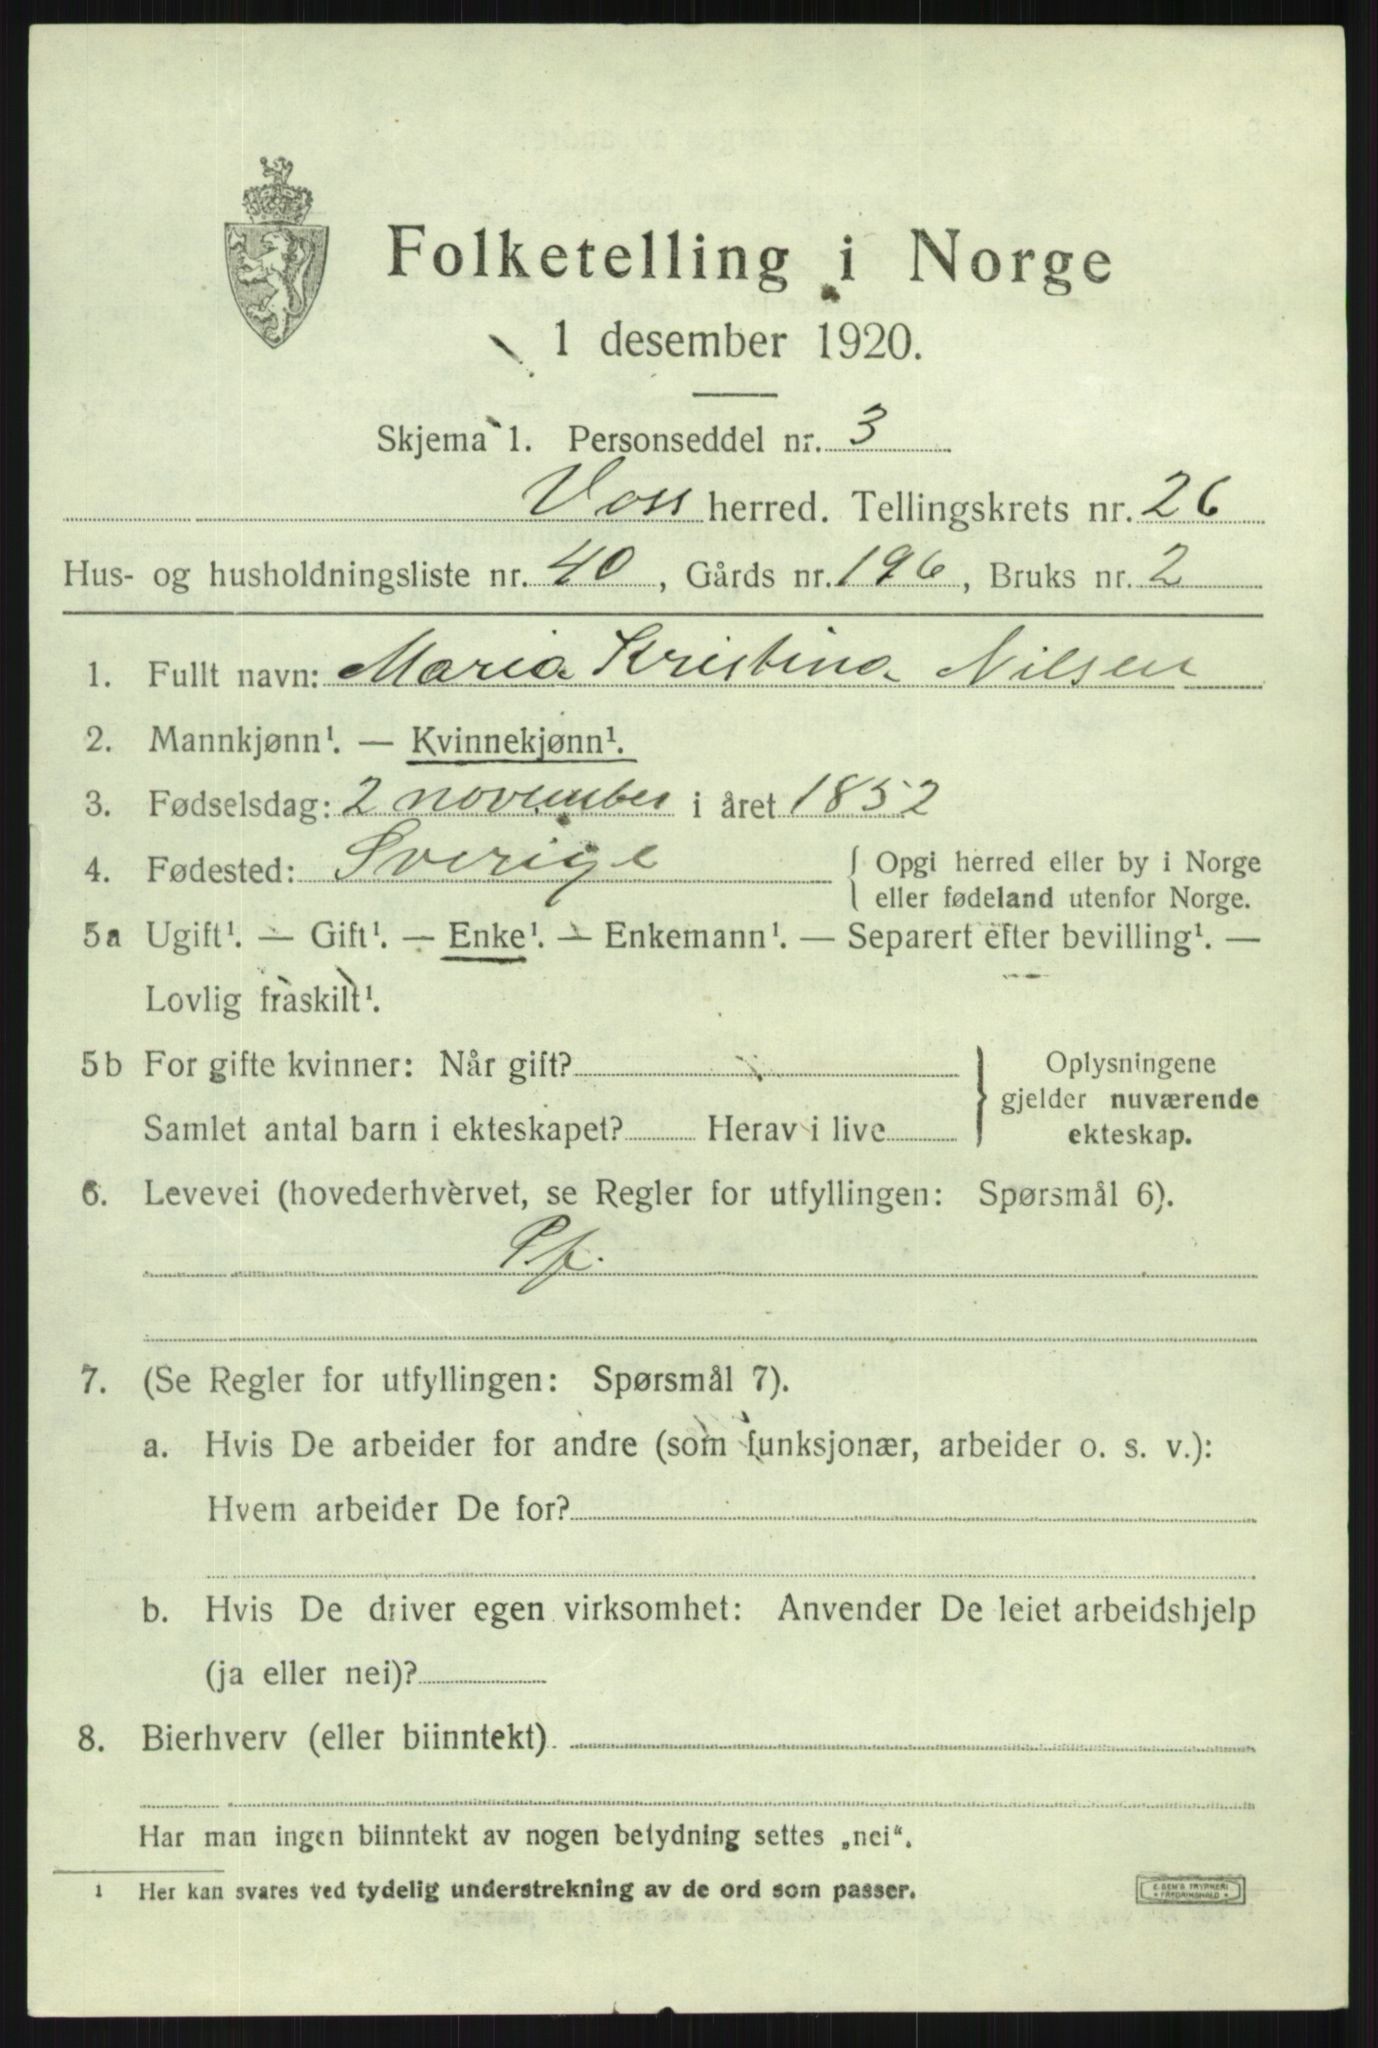 Folketelling i Norge
1 desember 1920.
Skjema 1. Personseddel nr. 3
Voss herred. Tellingskrets nr. 26
Hus- og husholdningsliste nr. 40, Gårds nr. 196, Bruks nr. 2
1. Fullt navn: Maria Kristina Nilsen
2. Mannkjønn¹. — Kvinnekjønn¹.
3. Fødselsdag: 2 november i året 1852
4. Fødested: Sverige { Opgi herred eller by i Norge
eller fødeland utenfor Norge.
5a Ugift¹. — Gift¹. — Enke¹. — Enkemann¹. — Separert efter bevilling¹. —
Lovlig fraskilt¹.
5b For gifte kvinner: Når gift? } Oplysningene
gjelder nuværende
Samlet antal barn i ekteskapet? Herav i live
ekteskap.
6. Levevei (hovederhvervet, se Regler for utfyllingen: Spørsmål 6).
P.f.
7. (Se Regler for utfyllingen: Spørsmål 7).
a. Hvis De arbeider for andre (som funksjonær, arbeider o. s. v.):
Hvem arbeider De for?
b. Hvis De driver egen virksomhet: Anvender De leiet arbeidshjelp
(ja eller nei)?
8. Bierhverv (eller biinntekt)
Har man ingen biinntekt av nogen betydning settes „nei“.
¹ Her kan svares ved tydelig understrekning av de ord som passer.
E. SEM'S TRYKKERI
FREDRIKSHALD